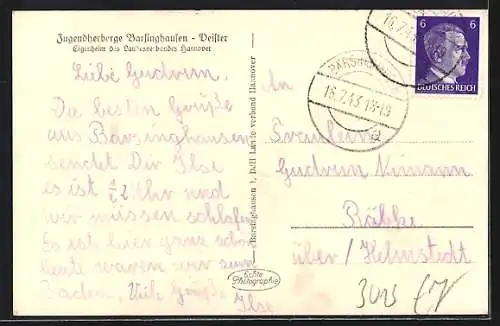 Jugendherberge Barsinghausen - Deister
Eigenheim des Landesverbandes Hannover
Liebe Gudrun.
Die besten Grüße
aus Barsinghausen
sendet Dir Ilse
es ist ½2 Uhr und
wir müssen schlafen
Es ist hier ganz schön
heute waren wir zum
Baden. Viele Grüße
Ilse
Barsinghausen 1, DJH Landesverband Hannover
Echte
Photographie
BARSINGHAUSEN
16.7.43 18-19
a
16.7.43
6 6
DEUTSCHES REICH
An
Fräulein
Gudrun
Räbke
über / Helmstedt